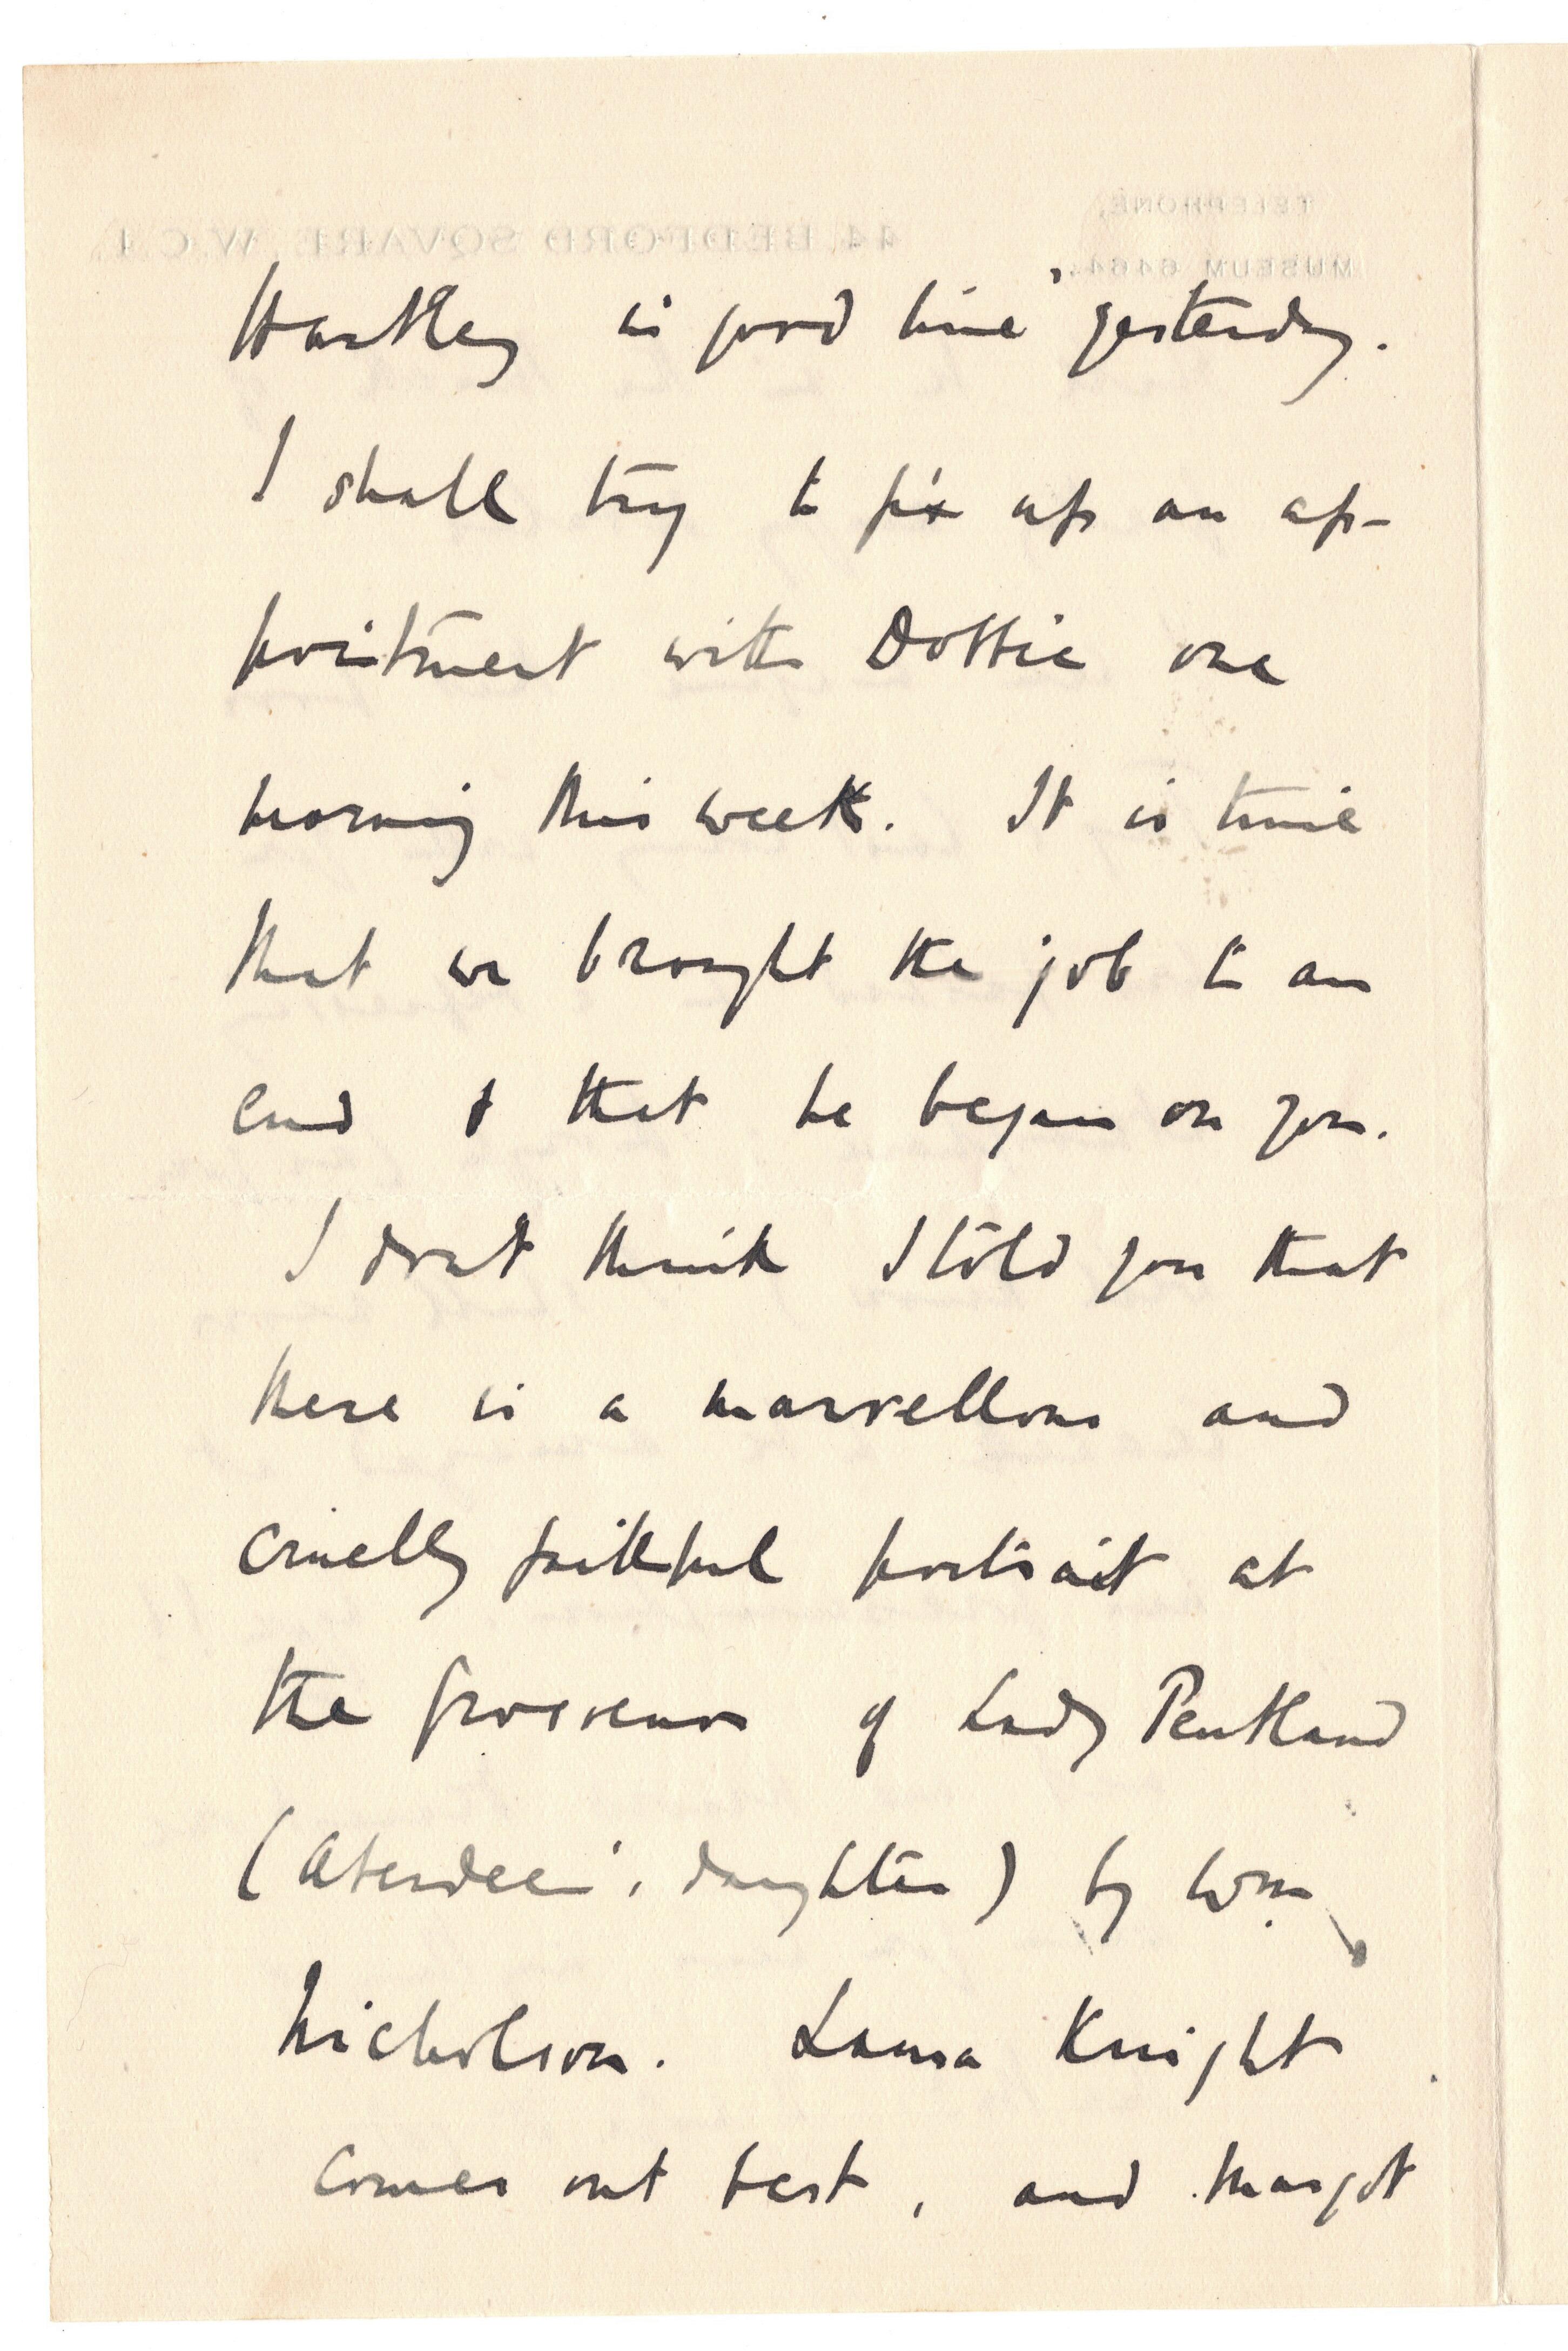 TELEPHONE,
MUSEUM 6464.
44, BEDFORD SQVARE, W.C.1.
Hartley in good time yesterday.
I shall try to fix up an ap-
pointment with Dottie one
morning this week. It is time
that we brought the job to an
end & that he began on you.
I don't think I told you that
there is a marvellous and
cruelly faithful portrait at
the Grosvenor of Lady Pentland
(Aberdeen's daughter) by Wm
Nicholson. Laura Knight
comes out best, and Margot